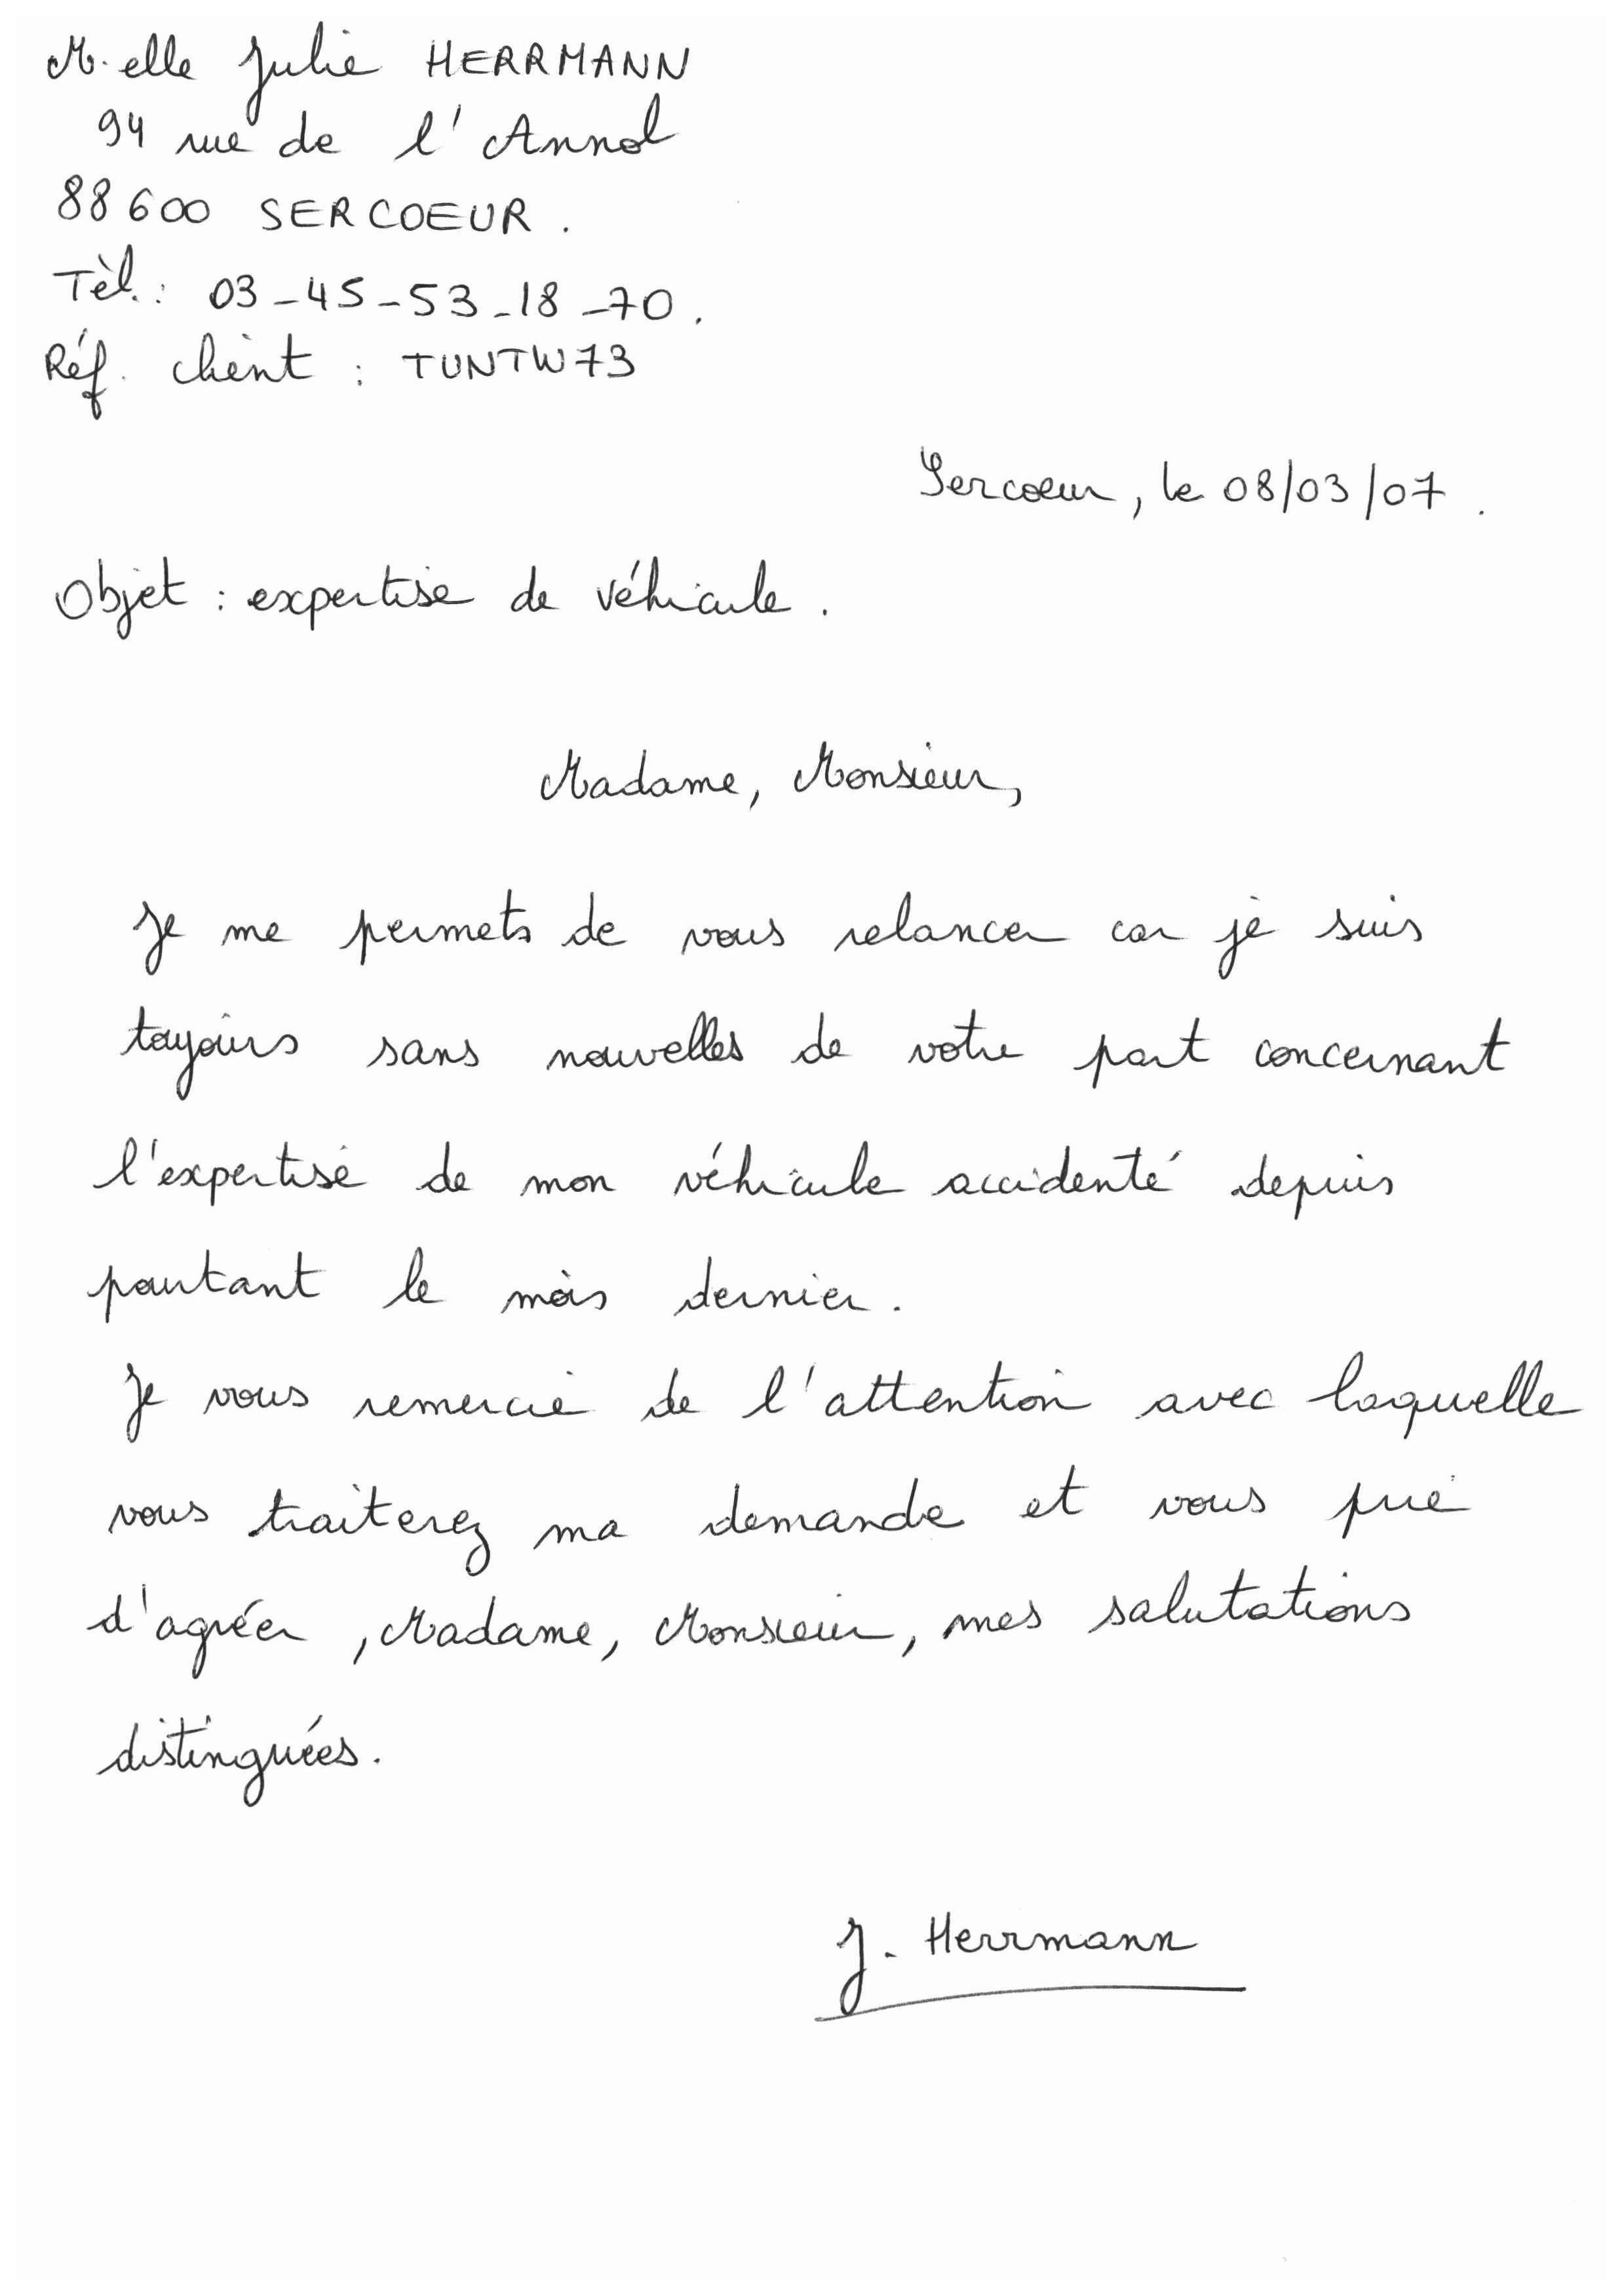 M.elle Julie HERRMANN
94 rue de l'Annol
88600 SERCOEUR.
Tèl.: 03-45-53-18-70.
Réf. client : TUNTW73
Sercoeur, le 08/03/07.
Objet : expertise de véhicule.
Madame, Monsieur,
Je me permets de vous relancer car je suis
toujours sans nouvelles de votre part concernant
l'expertise de mon véhicule accidenté depuis
pourtant le mois dernier.
Je vous remercie de l'attention avec laquelle
vous traiterez ma demande et vous prie
d'agréer, Madame, Monsieur, mes salutations
distinguées.
J. Herrmann